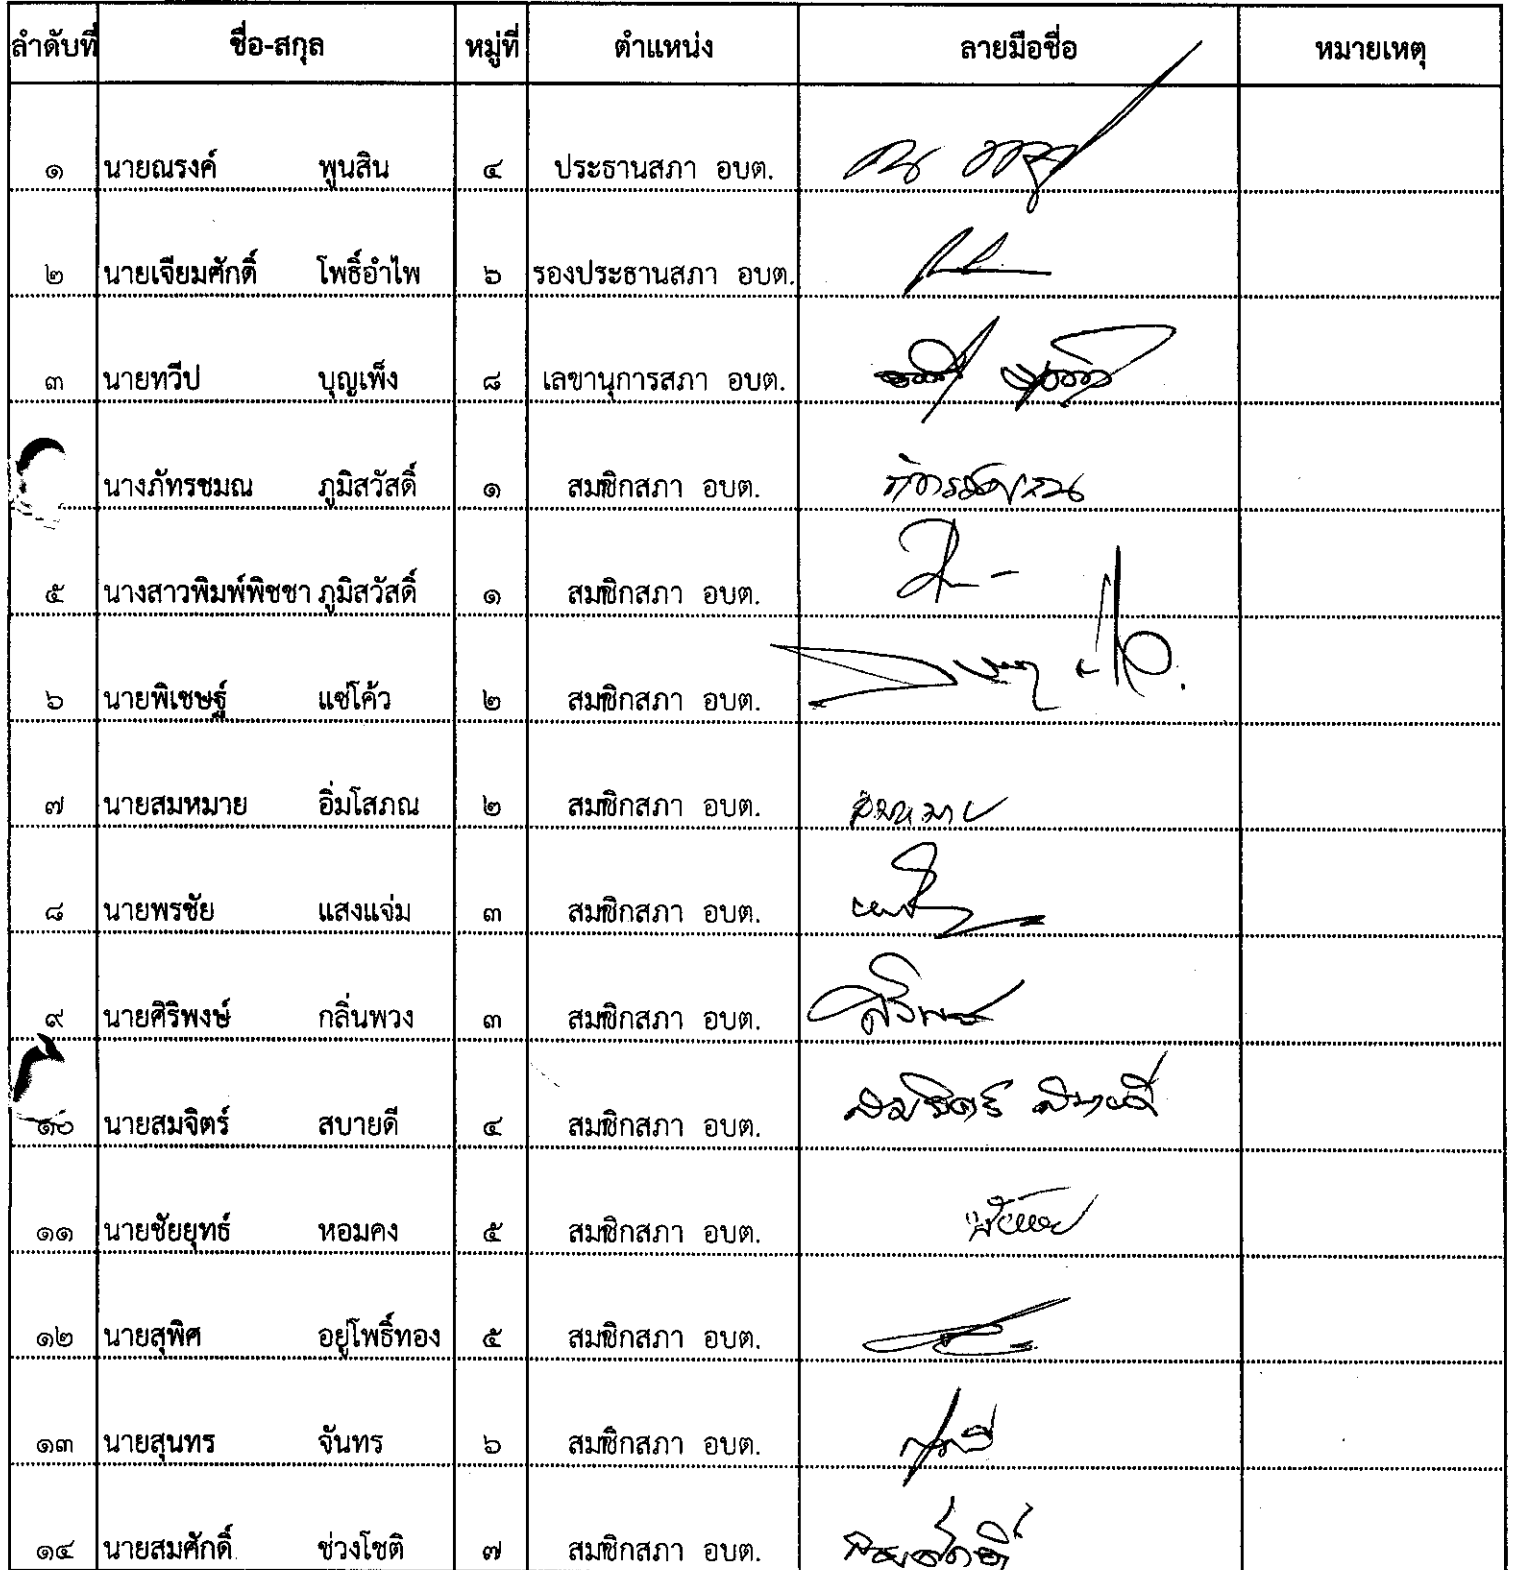 ลำดับที่ ชื่อ-สกุล หมู่ที่ ตำแหน่ง ลายมือชื่อ หมายเหตุ
๑ นายณรงค์ พูนสิน ๔ ประธานสภา อบต.
๒ นายเจียมศักดิ์ โพธิ์อำไพ ๖ รองประธานสภา อบต.
๓ นายทวีป บุญเพ็ง ๘ เลขานุการสภา อบต.
นางภัทรชมณ ภูมิสวัสดิ์ ๑ สมชิกสภา อบต.
๕ นางสาวพิมพ์พิชชา ภูมิสวัสดิ์ ๑ สมชิกสภา อบต.
๖ นายพิเชษฐ์ แซ่โค้ว ๒ สมชิกสภา อบต.
๗ นายสมหมาย อิ่มโสภณ ๒ สมชิกสภา อบต. สมหมาย
๘ นายพรชัย แสงแจ่ม ๓ สมชิกสภา อบต.
๙ นายศิริพงษ์ กลิ่นพวง ๓ สมชิกสภา อบต.
๑๐ นายสมจิตร์ สบายดี ๔ สมชิกสภา อบต. สมจิตร์ สบายดี
๑๑ นายชัยยุทธ์ หอมคง ๕ สมชิกสภา อบต.
๑๒ นายสุพิศ อยู่โพธิ์ทอง ๕ สมชิกสภา อบต.
๑๓ นายสุนทร จันทร ๖ สมชิกสภา อบต.
๑๔ นายสมศักดิ์ ช่วงโชติ ๗ สมชิกสภา อบต. สมศักดิ์